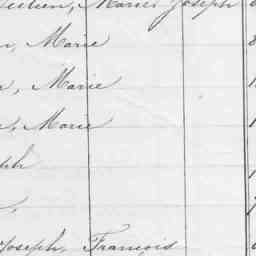 Julien, Marie Joseph
, Marie
, Marie
, Marie
ph
,
Joseph, François